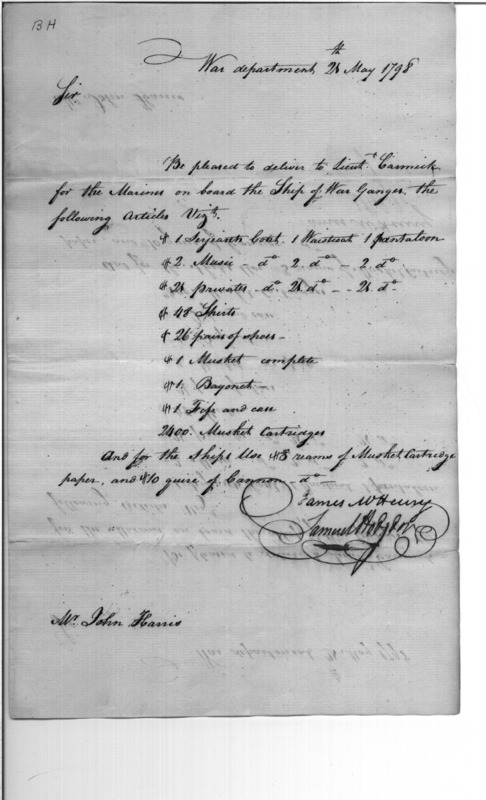 BH
War department 24th May 1798
Sir
Be pleased to deliver to Lieut. Carmick
for the Marines on board the Ship of War Ganges, the
following Articles Vizt.
1 Serjeants Coat, 1 Waistcoat 1 pantaloon
2. Music - do 2. do - 2 do
24 privates - do. 24 do - - 24 do.
48 Shirts
26 pairs of shoes -
1 Musket complete
1. Bayonet -
1 Fife and case
2400. Musket Cartridges
And for the Ships Use 8 reams of Musket Cartridge
paper, and 10 quire of Cannon - do
James McHenry
Samuel Hodgdon
Mr. John Harris